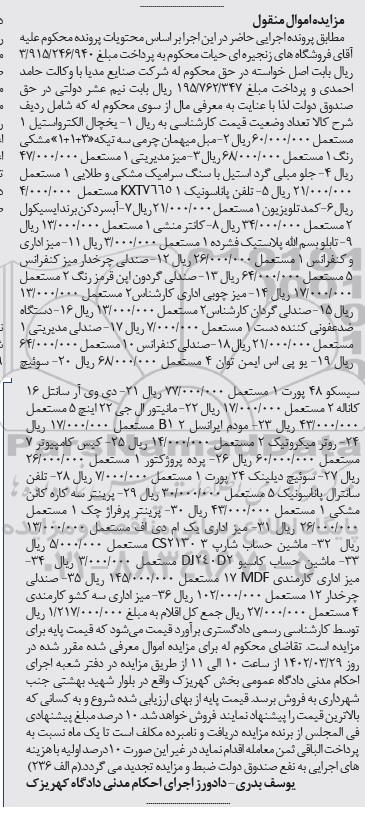 مزایده اموال منقول
مطابق پرونده اجرایی حاضر در این اجرا بر اساس محتویات پرونده محکوم علیه
آقای فروشگاه های زنجیره ای حیات محکوم به پرداخت مبلغ ۳/۹۱۵/۲۴۶/۹۴۰
ریال بابت اصل خواسته در حق محکوم له شرکت صنایع مدیا با وکالت حامد
احمدی و پرداخت مبلغ ۱۹۵/۷۶۲/۳۴۷ ریال بابت نیم عشر دولتی در حق
صندوق دولت لذا با عنایت به معرفی مال از سوی محکوم له که شامل ردیف
شرح کالا تعداد وضعیت قیمت کارشناسی به ریال ۱- یخچال الکترواستیل ۱
مستعمل ۶۰/۰۰۰/۰۰۰ ریال ۲-مبل میهمان چرمی سه تیکه «۳+۱+۱» مشکی
رنگ ۱ مستعمل ۶۸/۰۰۰/۰۰۰ ریال ۳-میز مدیریتی ۱ مستعمل ۴۷/۰۰۰/۰۰۰
ریال ۴- جلو مبلی گرد استیل با سنگ سرامیک مشکی و طلایی ۱ مستعمل
۲۱/۰۰۰/۰۰۰ ریال ۵- تلفن پاناسونیک ۱ KXTV۷۶٦۵ مستعمل ۴/۰۰۰/۰۰۰
ریال ۶-کمد تلویزیون ۱ مستعمل ۲۱/۰۰۰/۰۰۰ ریال ۷-آبسردکن برند ایسیکول
۲ مستعمل ۳۴/۰۰۰/۰۰۰ ریال ۸-کانتر منشی ۱ مستعمل ۱۳/۰۰۰/۰۰۰ ریال
۹-تابلو بسم الله پلاستیک فشرده ۱ مستعمل ۳/۰۰۰/۰۰۰ ریال ۱۱-میز اداری
و کنفرانس ۱ مستعمل ۲۶/۰۰۰/۰۰۰ ریال ۱۲-صندلی چرخدار میز کنفرانس
۵ مستعمل ۶۴/۰۰۰/۰۰۰ ریال ۱۳-صندلی گردون اپن قرمز رنگ ۲ مستعمل
۱۷/۰۰۰/۰۰۰ ریال ۱۴- میز چوبی اداری کارشناس ۲ مستعمل ۱۳/۰۰۰/۰۰۰
ریال ۱۵-صندلی گردان کارشناس ۲ مستعمل ۱۳/۰۰۰/۰۰۰ ریال ۱۶-دستگاه
ضدعفونی کننده دست ۱ مستعمل ۷/۰۰۰/۰۰۰ ریال ۱۷-صندلی مدیریتی ۱
مستعمل ۲۱/۰۰۰/۰۰۰ ریال ۱۸-صندلی کنفرانس ۱۰ مستعمل ۶۴/۰۰۰/۰۰۰
ریال ۱۹- یو پی اس ایمن توان ۴ مستعمل ۶۸/۰۰۰/۰۰۰ ریال ۲۰- سوئیچ
سیسکو ۴۸ پورت ۱ مستعمل ۷۷/۰۰۰/۰۰۰ ریال ۲۱- دی وی آر سانتل ۱۶
کاناله ۲ مستعمل ۱۷/۰۰۰/۰۰۰ ریال ۲۲-مانیتور ال جی ۲۲ اینچ ۵ مستعمل
۴۳/۰۰۰/۰۰۰ ریال ۲۳- مودم ایرانسل B۱ ۲ مستعمل ۱۷/۰۰۰/۰۰۰ ریال
۲۴- روتر میکروتیک ۲ مستعمل ۱۴/۰۰۰/۰۰۰ ریال ۲۵- کیس کامپیوتر ۷
مستعمل ۶۰/۰۰۰/۰۰۰ ریال ۲۶- پرده پروژکتور ۱ مستعمل ۲۶/۰۰۰/۰۰۰
ریال ۲۷- سوئیچ دیلینک ۲۴ پورت ۱ مستعمل ۷/۰۰۰/۰۰۰ ریال ۲۸- تلفن
سانترال پاناسونیک ۵ مستعمل ۳۰/۰۰۰/۰۰۰ ریال ۲۹- پرینتر سه کاره کانن
مشکی ۱ مستعمل ۴۳/۰۰۰/۰۰۰ ریال ۳۰- پرینتر پرفراژ چک ۱ مستعمل
۲۶/۰۰۰/۰۰۰ ریال ۳۱- میز اداری یک ام دی اف مستعمل ۱۳/۰۰۰/۰۰۰
ریال ۳۲- ماشین حساب شارپ ۳ CS۲۱۳۰ مستعمل ۵/۰۰۰/۰۰۰ ریال
۳۳- ماشین حساب کاسیو DJ۲٤۰D۲ مستعمل ۳/۰۰۰/۰۰۰ ریال ۳۴-
میز اداری کارمندی MDF ۱۷ مستعمل ۱۴۵/۰۰۰/۰۰۰ ریال ۳۵- صندلی
چرخدار ۱۲ مستعمل ۱۰۲/۰۰۰/۰۰۰ ریال ۳۶- میز اداری سه کشو کارمندی
۴ مستعمل ۲۷/۰۰۰/۰۰۰ ریال جمع کل اقلام به مبلغ ۱/۲۱۷/۰۰۰/۰۰۰ ریال
توسط کارشناسی رسمی دادگستری برآورد قیمت می‌شود که قیمت پایه برای
مزایده است. تقاضای محکوم له برای مزایده اموال معرفی شده مقرر شده در
روز ۱۴۰۲/۰۳/۲۹ از ساعت ۱۰ الی ۱۱ از طریق مزایده در دفتر شعبه اجرای
احکام مدنی دادگاه عمومی بخش کهریزک واقع در بلوار شهید بهشتی جنب
شهرداری به فروش برسد. قیمت پایه از بهای ارزیابی شده شروع و به کسانی که
بالاترین قیمت را پیشنهاد نمایند فروش خواهد شد. ۱۰ درصد مبلغ پیشنهادی
فی المجلس از برنده مزایده دریافت و نامبرده مکلف است تا یک ماه نسبت به
پرداخت الباقی ثمن معامله اقدام نماید در غیر این صورت ۱۰ درصد اولیه با هزینه
های اجرایی به نفع صندوق دولت ضبط و مزایده تجدید می گردد.(م الف ۲۳۶)
یوسف بدری- دادورز اجرای احکام مدنی دادگاه کهریزک